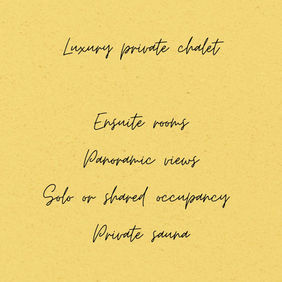 Luxury private chalet
Ensuite rooms
Panoramic views
Solo or shared occupancy
Private sauna